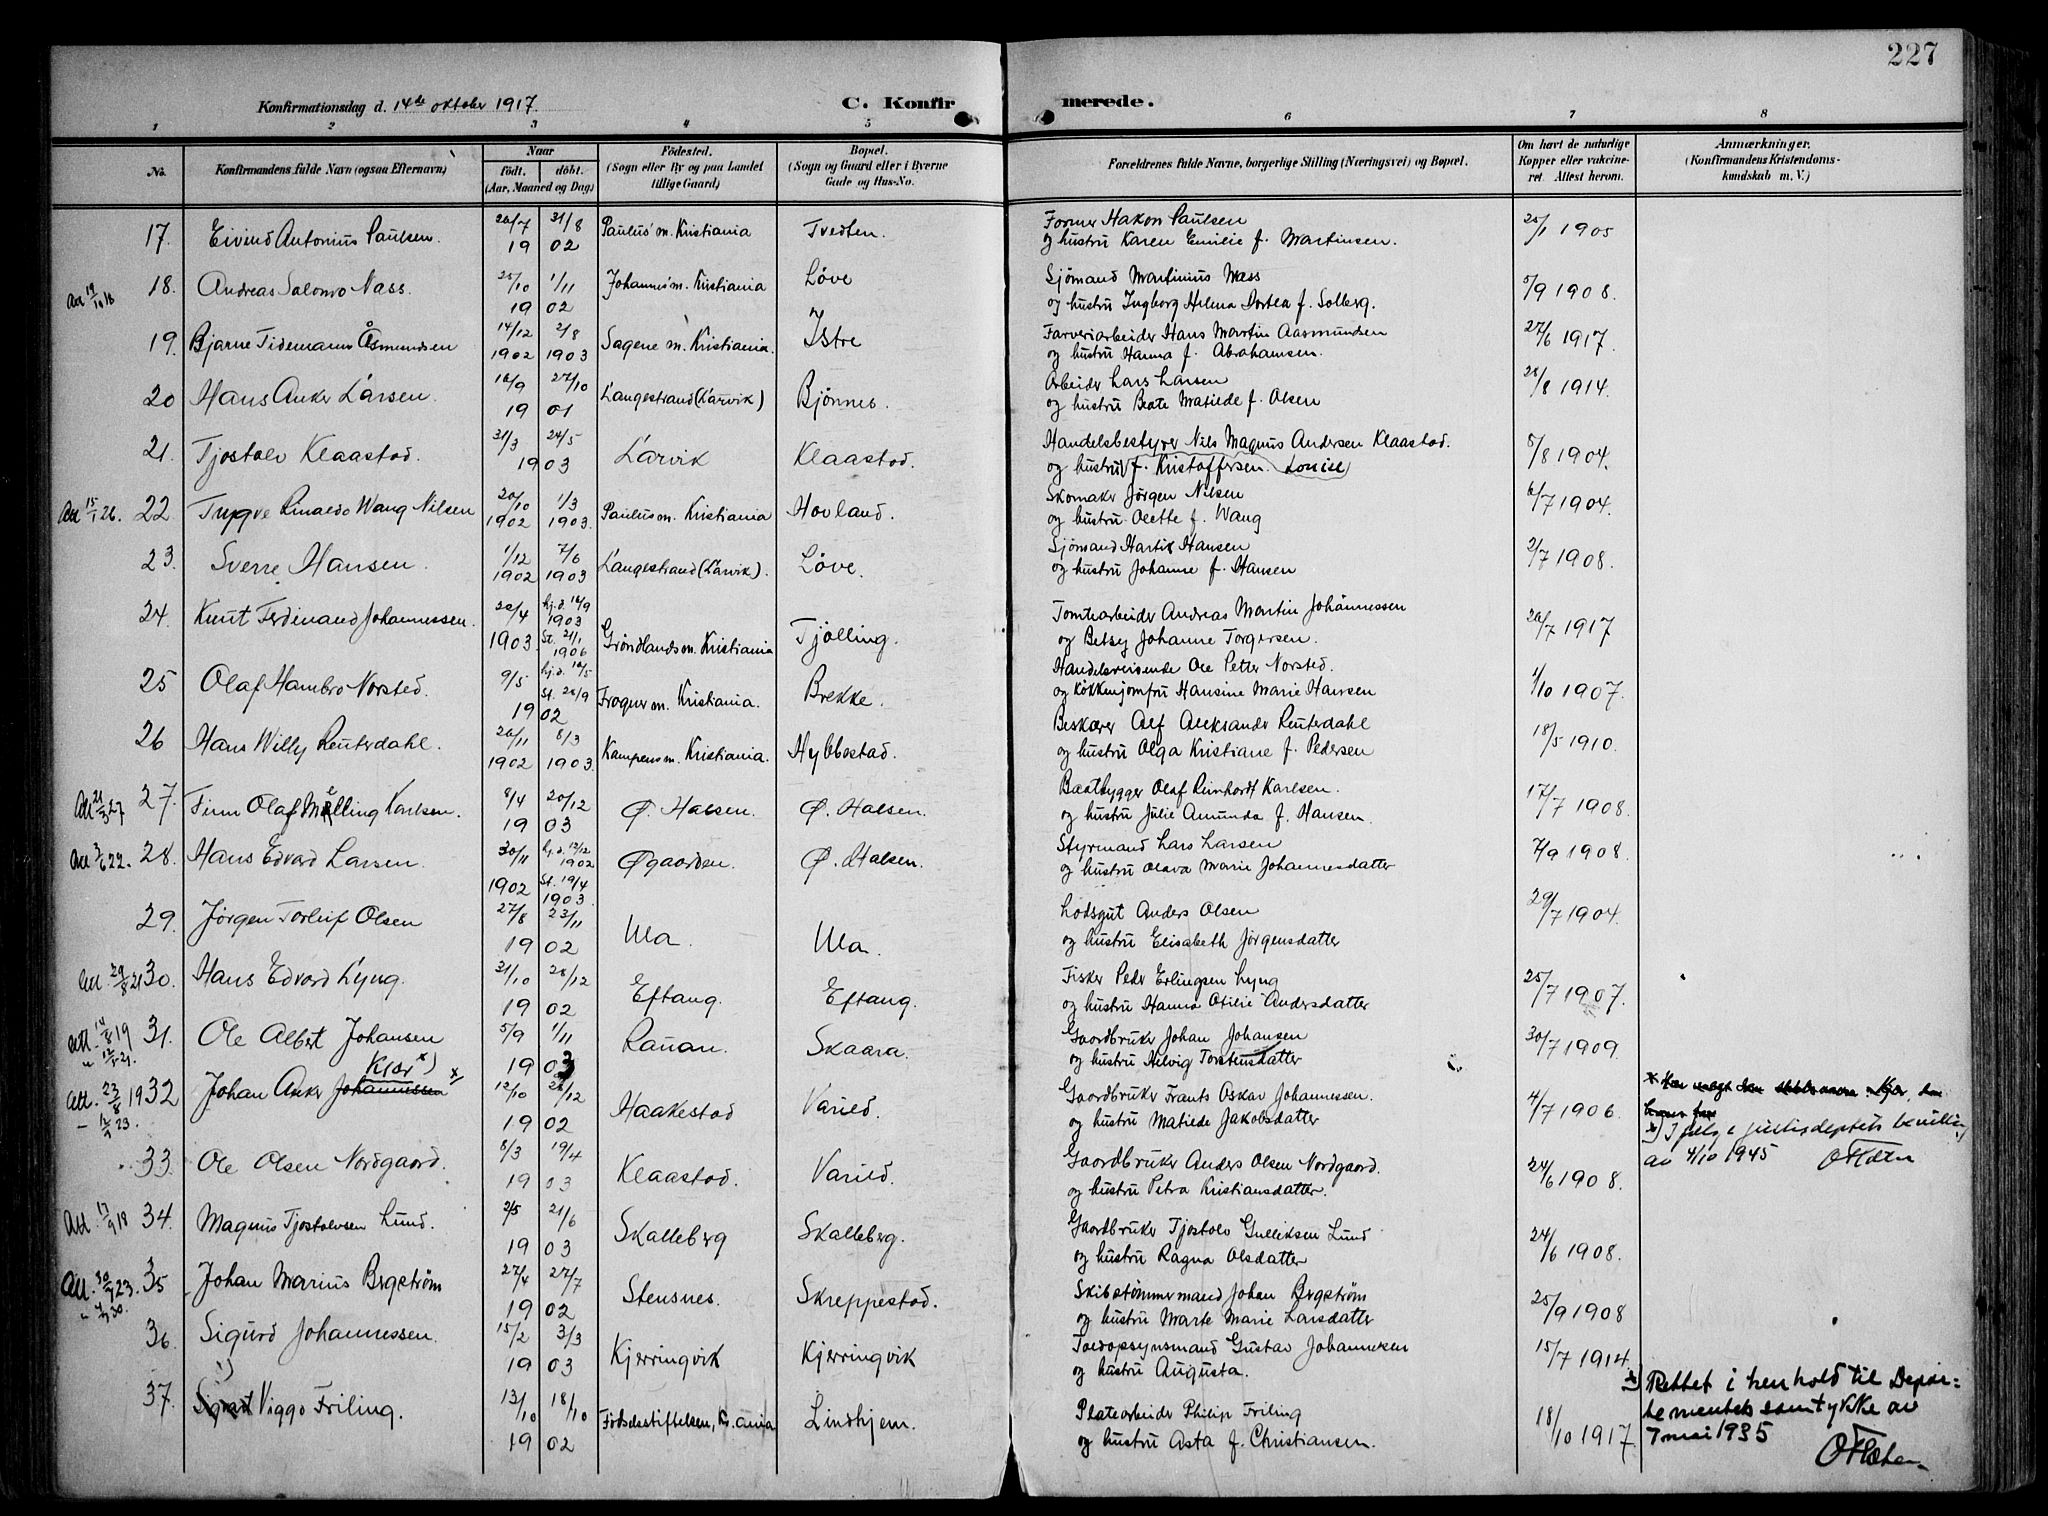 227
Konfirmationsdag d. 14de oktober 1917. C. Konfirmerede.
1 2 3 4 5 6 7 8
No. Konfirmandens fulde Navn (ogsaa Efternavn) Naar født. døbt. (Aar, Maaned og Dag) Fødested. (Sogn eller By og paa Landet tillige Gaard) Bopæl. (Sogn og Gaard eller i Byerne Gade og Hus-No. Forældrenes fulde Navne, borgerlige Stilling (Næringsvei) og Bopæl. Om havt de naturlige Kopper eller vakcineret. Attest herom. Anmærkninger. (Konfirmandens Kristendomskundskab m. V.)
17. Eivind Antonius Paulsen. 20/7 31/8 Paulus m. Kristiania Tvedten. Former Hakon Paulsen 25/1 1905
19 02 og hustru Karen Emilie f. Martinsen.
18. Andreas Salomo Næss. 25/10 1/11 Johannes m. Kristiania Løve Sjømand Martinius Næss 5/9 1908.
19 02 og hustru Ingborg Helena Dortea f. Solberg.
19. Bjarne Tidemann Åsmundsen 14/12 2/8 Sagene m. Kristiania. Istre Farveriarbeider Hans Martin Aasmundsen 27/6 1917.
1902 1903 og hustru Hanna f. Abrahamsen.
20 Hans Anker Larsen. 16/9 27/10 Langestrand (Larvik) Bjønnes. Arbeider Lars Larsen 28/8 1914.
19 01 og hustru Beate Matilde f. Olsen
21. Tjostolv Klaastad. 31/3 24/5 Larvik Klaastad. Handelsbestyrer Nils Magnus Andersen Klaastad. 5/8 1904.
19 03 og hustru f. Kristoffersen. Louise
Att 15/1 26. 22 Trygve Rinaldo Wang Nilsen 20/10 1/3 Paulus m. Kristiania Hovland. Skomaker Jørgen Nilsen 6/7 1904.
1902 1903. og hustru Olette f. Wang
23. Sverre Hansen. 1/12 7/6 Langestrand (Larvik). Løve. Sjømand Hartvik Hansen 2/7 1908.
1902 1903 og hustru Johanne f. Hansen
24. Knut Ferdinand Johannessen. 20/4 hj.d. 16/9 1903 Grøndlands m. Kristiania Tjølling. Tomtearbeider Andreas Martin Johannessen 20/7 1917
1903. St. 21/1 1906 og Betsy Johanne Torgersen.
25 Olaf Hambro Norsted. 9/5 hj.d. 16/5 Frogner m. Kristiania. Brekke. Handelsreisende Ole Petter Norsted. 1/10 1907.
19 St. 28/9 02 og kokkenjomfru Hansine Marie Hansen
26 Hans Willy Reuterdahl. 20/11 8/3 Kampens m. Kristiania. Hybbestad. Beskjærer Alf Aleksander Reuterdahl 18/5 1910.
1902 1903. og hustru Olga Kristiane f. Pedersen
Att 21/3 27 27. Finn Olaf Mølling Karlsen. 8/4 20/12 Ø. Halsen. Ø. Halsen. Baatbygger Olaf Reinhardt Karlsen. 17/7 1908.
19 03 og hustru Julie Amunda f. Hansen.
Att 3/6 22. 28. Hans Edvard Larsen. 30/11 hj.d. 12/12 1902 Øgaarden. Ø. Halsen. Styrmand Lars Larsen 7/9 1908.
1902 St. 19/4 1903. og hustru Olava Marie Johannesdatter
29. Jørgen Torleif Olsen 27/8 23/11 Ula. Ula. Lodsgut Anders Olsen 29/7 1904.
19 02 og hustru Elisabeth Jørgensdatter
Att. 29/8 21 30. Hans Edvard Lyng. 31/10 28/12 Eftang. Eftang. Fisker Peder Erlingsen Lyng 25/7 1907.
19 02 og hustru Hanna Otilie Andersdatter
Att. 14/8 19 31. Ole Albert Johansen 5/9 1/11 Rauan. Skaara. Gaardbruker Johan Johansen 30/7 1909.
19 03 og hustru Helvig Torstensdatter
Att. 23/8 19 32 Johan Anker Johannessen Kjær x) 12/10 28/12 Haakestad Varild. Gaardbruker Frants Oskar Johannessen. 4/7 1906.
19 02 og hustru Matilde Jakobsdatter
x) I følge justisdeptets bevilling
av 4/10 1945
33. Ole Olsen Nordgaard. 8/3 19/4 Klaastad. Varild. Gaardbruker Anders Olsen Nordgaard. 24/6 1908.
19 03 og hustru Petra Kristiansdatter.
Att. 17/9 18 34. Magnus Tjostolvsen Lund. 2/5 21/6 Skalleberg Skalleberg. Gaardbruker Tjostolv Gulliksen Lund 24/6 1908.
19 03 og hustru Ragna Olsdatter
35 Johan Marius Bergstrøm 27/4 27/7 Stensnes. Skreppestad. Skibstømmermand Johan Bergstrøm 25/9 1908
19 02 og hustru Marte Marie Larsdatter
36 Sigurd Johannessen. 15/2 3/3 Kjerringvik Kjerringvik Toldopsynsmand Gustav Johannesen 15/7 1914.
19 03 og hustru Augusta.
37. Viggo Friling. 13/10 18/10 Fødselsstiftelsen, Kr.ania Lindhjem. Platearbeider Philip Friling 18/10 1917.
19 02 og hustru Asta f. Christiansen.
x) Rettet i henhold til Depar=
tementets samtykke av
7 mai 1935